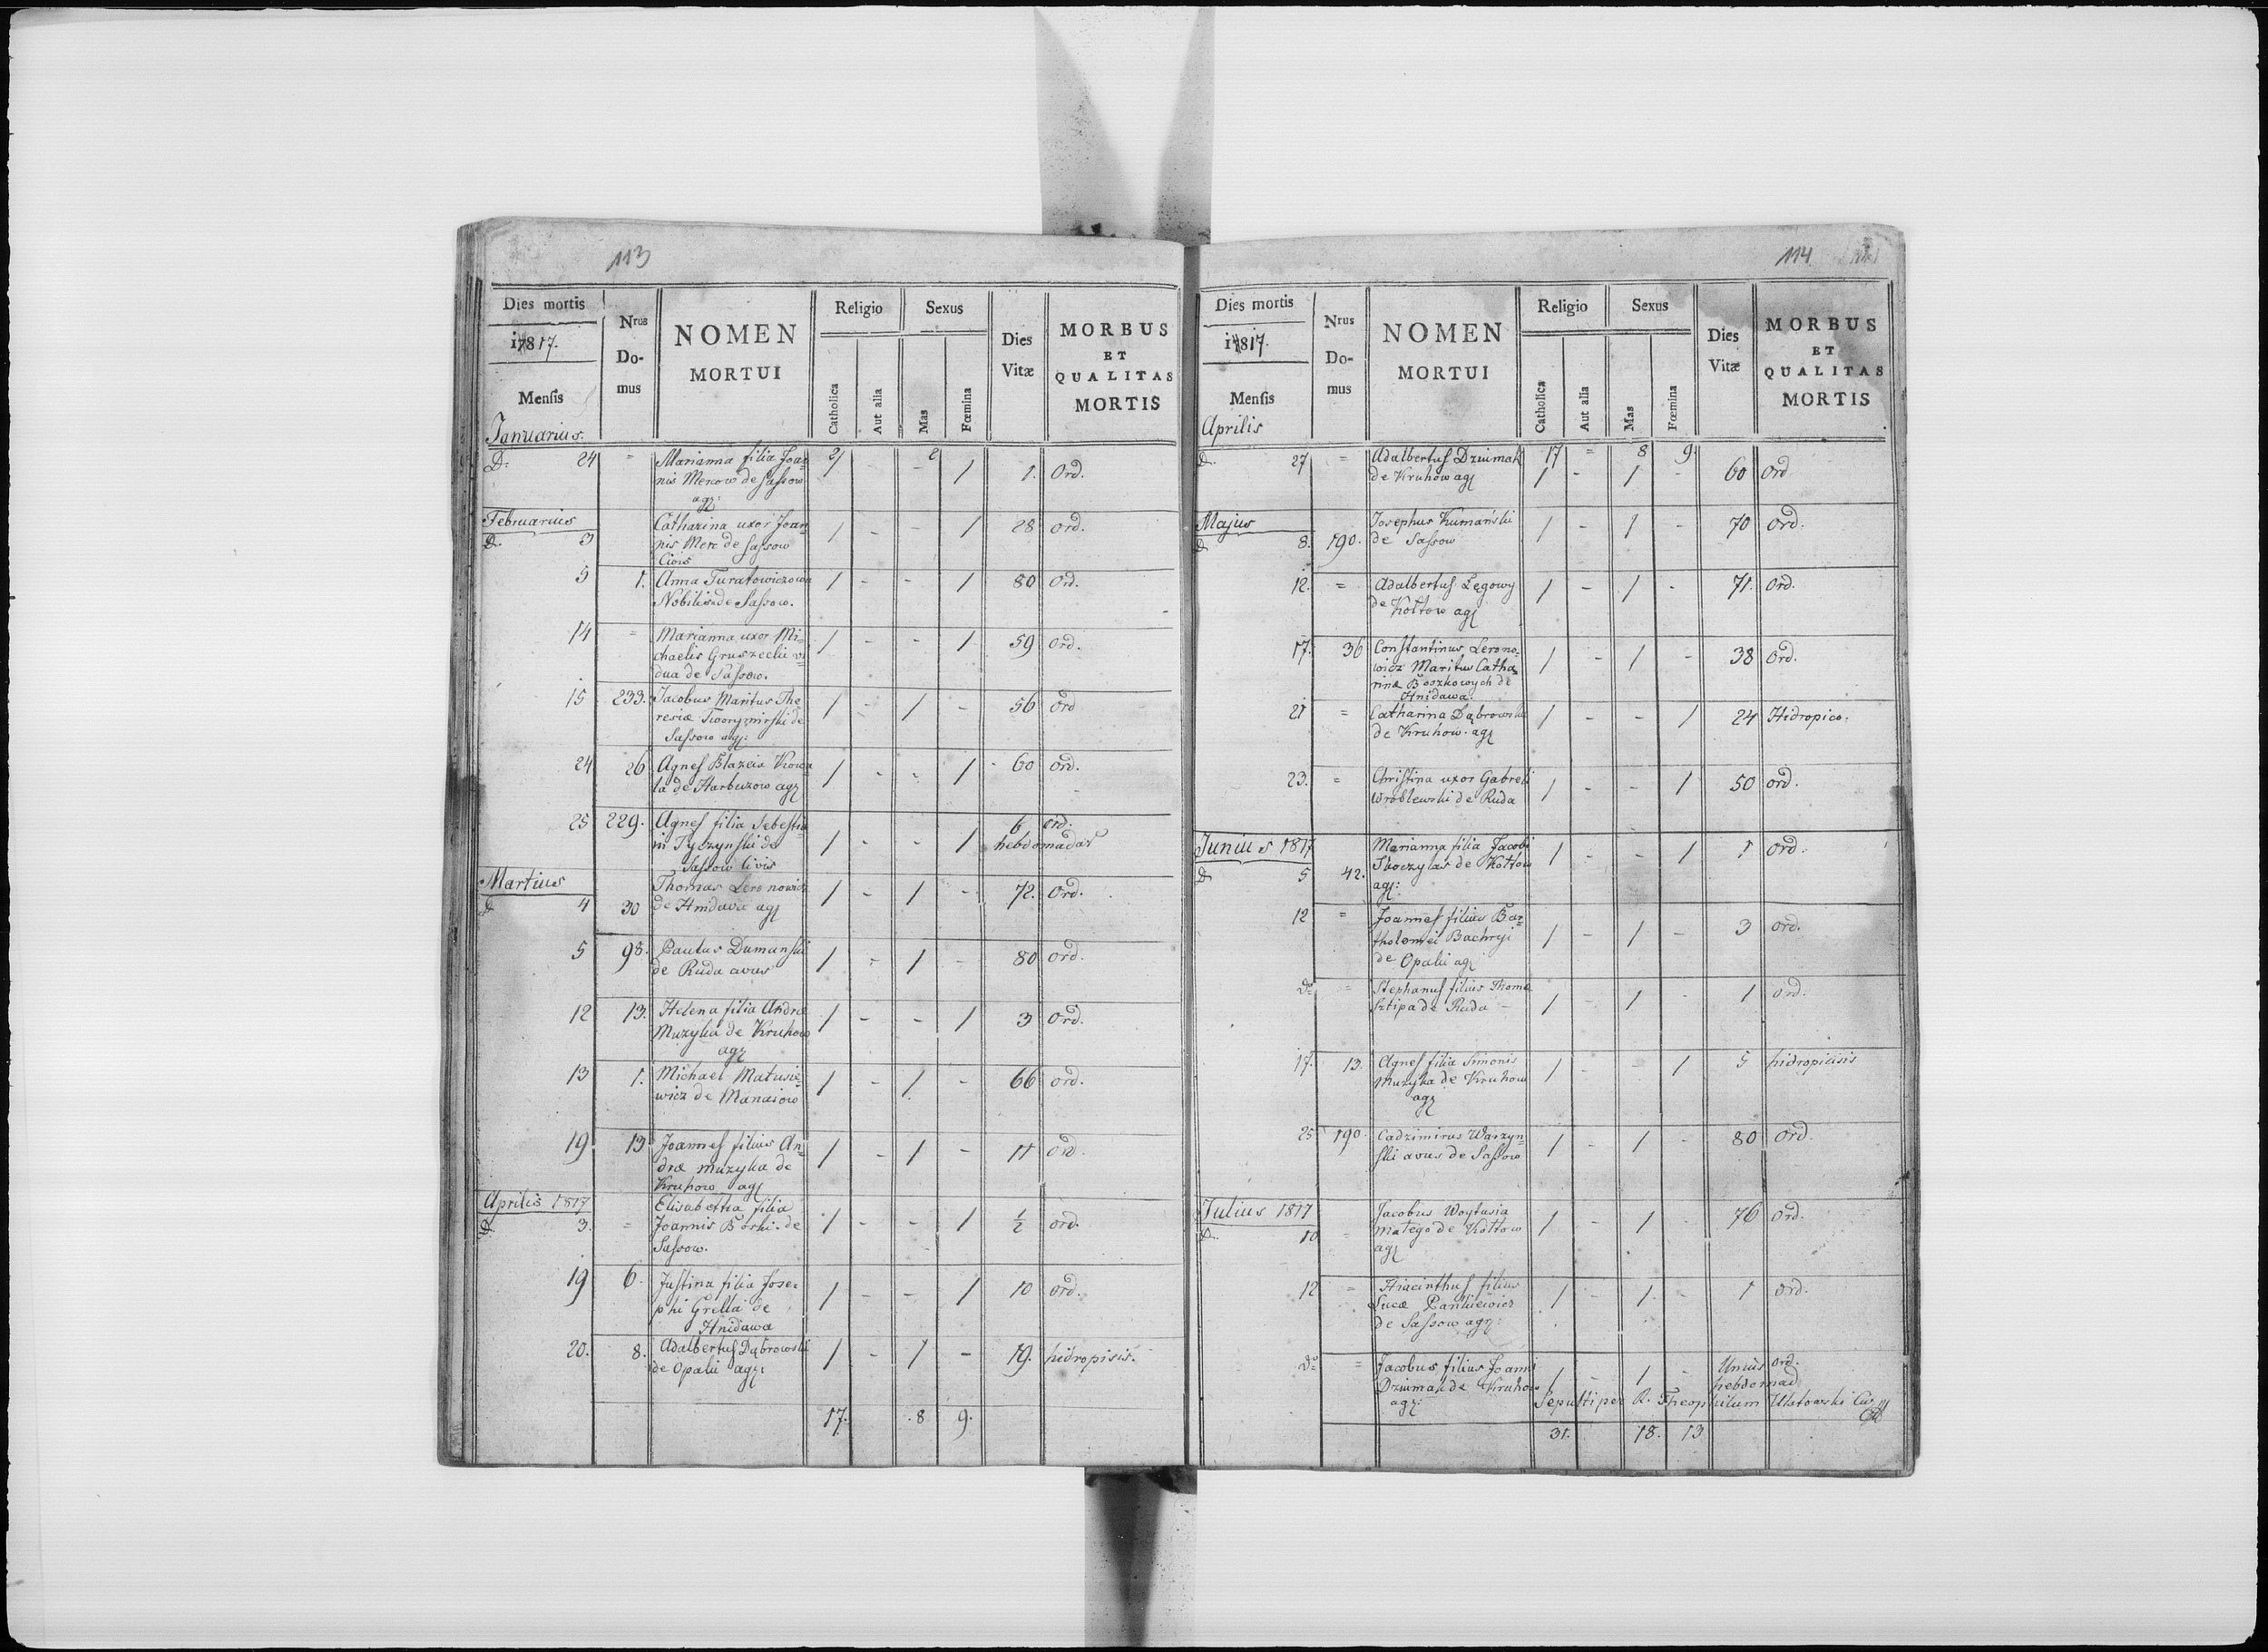 113
Dies mortis
17817.
Mensis
Januarius.
Nrus
Do-
mus
NOMEN
MORTUI
Religio
Catholica
Aut alia
Sexus
Mas
Fœmina
Dies
Vitæ
MORBUS
ET
QUALITAS
MORTIS
2 2
D. 24 = Marianna filia Joan= 1 - - 1 1. Ord.
nis Mercow de Sassow
agr:
Februarius
D. 3 Catharina uxor Joan 1 - - 1 28 ord.
nis Merc de Sassow
Civis
5 1. Anna Turatowiczowa 1 - - 1 80 ord.
Nobilis de Sassow.
14 = Marianna uxor Mi= 1 - - 1 59 ord.
chaelis Gruszecki vi
dua de Sassow.
15 233. Jacobus Maritus The 1 - 1 - 56 ord
resiæ Tworzymirski de
Sassow agr:
24 26 Agnes Blazeia Kowa 1 - - 1 60 ord.
la de Harbuzow agr
25 229. Agnes filia Sebestia 1 - - 1 6 ord.
ni Tyczynski de hebdomadar
Sassow Civis
Martius
D 4 30 Thomas Leronowicz 1 - 1 - 72. Ord.
de Hnidava agr
5 98. Paulus Dumanski 1 - 1 - 80 ord.
de Ruda avus
12 13. Helena filia Andræ 1 - - 1 3 Ord.
Muzyka de Kruhow
agr
13 1. Michael Matusie= 1 - 1 - 66 ord.
wicz de Manaiow
19 13 Joannes filius An= 1 - 1 - 11 ord.
dræ muzyka de
Kruhow agr
Aprilis 1817
D. 3. = Elisabetha filia 1 - - 1 1/2 ord.
Joannis Borski de
Sassow.
19 6. Justina filia Jose= 1 - - 1 10 ord.
phi Grella de
Hnidawa
20. 8. Adalbertus Dąbrowski 1 - 1 - 19. hidropisis.
de Opaki agr:
17. 8 9.
114
Dies mortis
17817.
Mensis
Aprilis
Nrus
Do-
mus
NOMEN
MORTUI
Religio
Catholica
Aut alia
Sexus
Mas
Fœmina
Dies
Vitæ
MORBUS
ET
QUALITAS
MORTIS
17 = 8 9
D. 27 = Adalbertus Dziuimak 1 - 1 - 60 Ord
de Kruhow agr
Majus
D 8. 190. Josephus Kumański 1 - 1 - 70 ord.
de Sassow
12. = Adalbertus Lęgowy 1 - 1 - 71. Ord.
de Kołtow agr
17. 36 Constantinus Lerono= 1 - 1 - 38 Ord.
wicz Maritus Catha=
rinæ Boszkowych de
Hnidawa.
21 = Catharina Dąbrowska 1 - - 1 24 Hidropico.
de Kruhow. agr
23. = Christina uxor Gabreli 1 - - 1 50 ord.
Wroblewski de Ruda
Junius 1817
D 5 42. Marianna filia Jacobi 1 - - 1 1 Ord.
Skoczylas de Kołtow
agr:
12 = Joannes filius Bar= 1 - 1 - 3 ord.
tholomei Bachryi
de Opaki agr
do = Stephanus filius Thoma 1 - 1 - 1 ord.
Sztipa de Ruda -
17. 13. Agnes filia Simonis 1 - - 1 5 hidropiisis
muzyka de Kruhow
agr
25 190 Cadzimirus Warzyn= 1 - 1 - 80 Ord.
ski avus de Sassow
Julius 1817
D. 10 = Jacobus Woytasia 1 - 1 - 76 Ord.
małego de Kołtow
agr
12 = Hiacinthus filius 1 - 1. - 1 ord.
Lucæ Pankiewicz
de Sassow agr:
do = Jacobus filius Joanni 1 - 1 - Unius ord.
Dziuimak de Kruhow hebdomad
agr: Sepulti per R. Theophilum
31. 18. 13